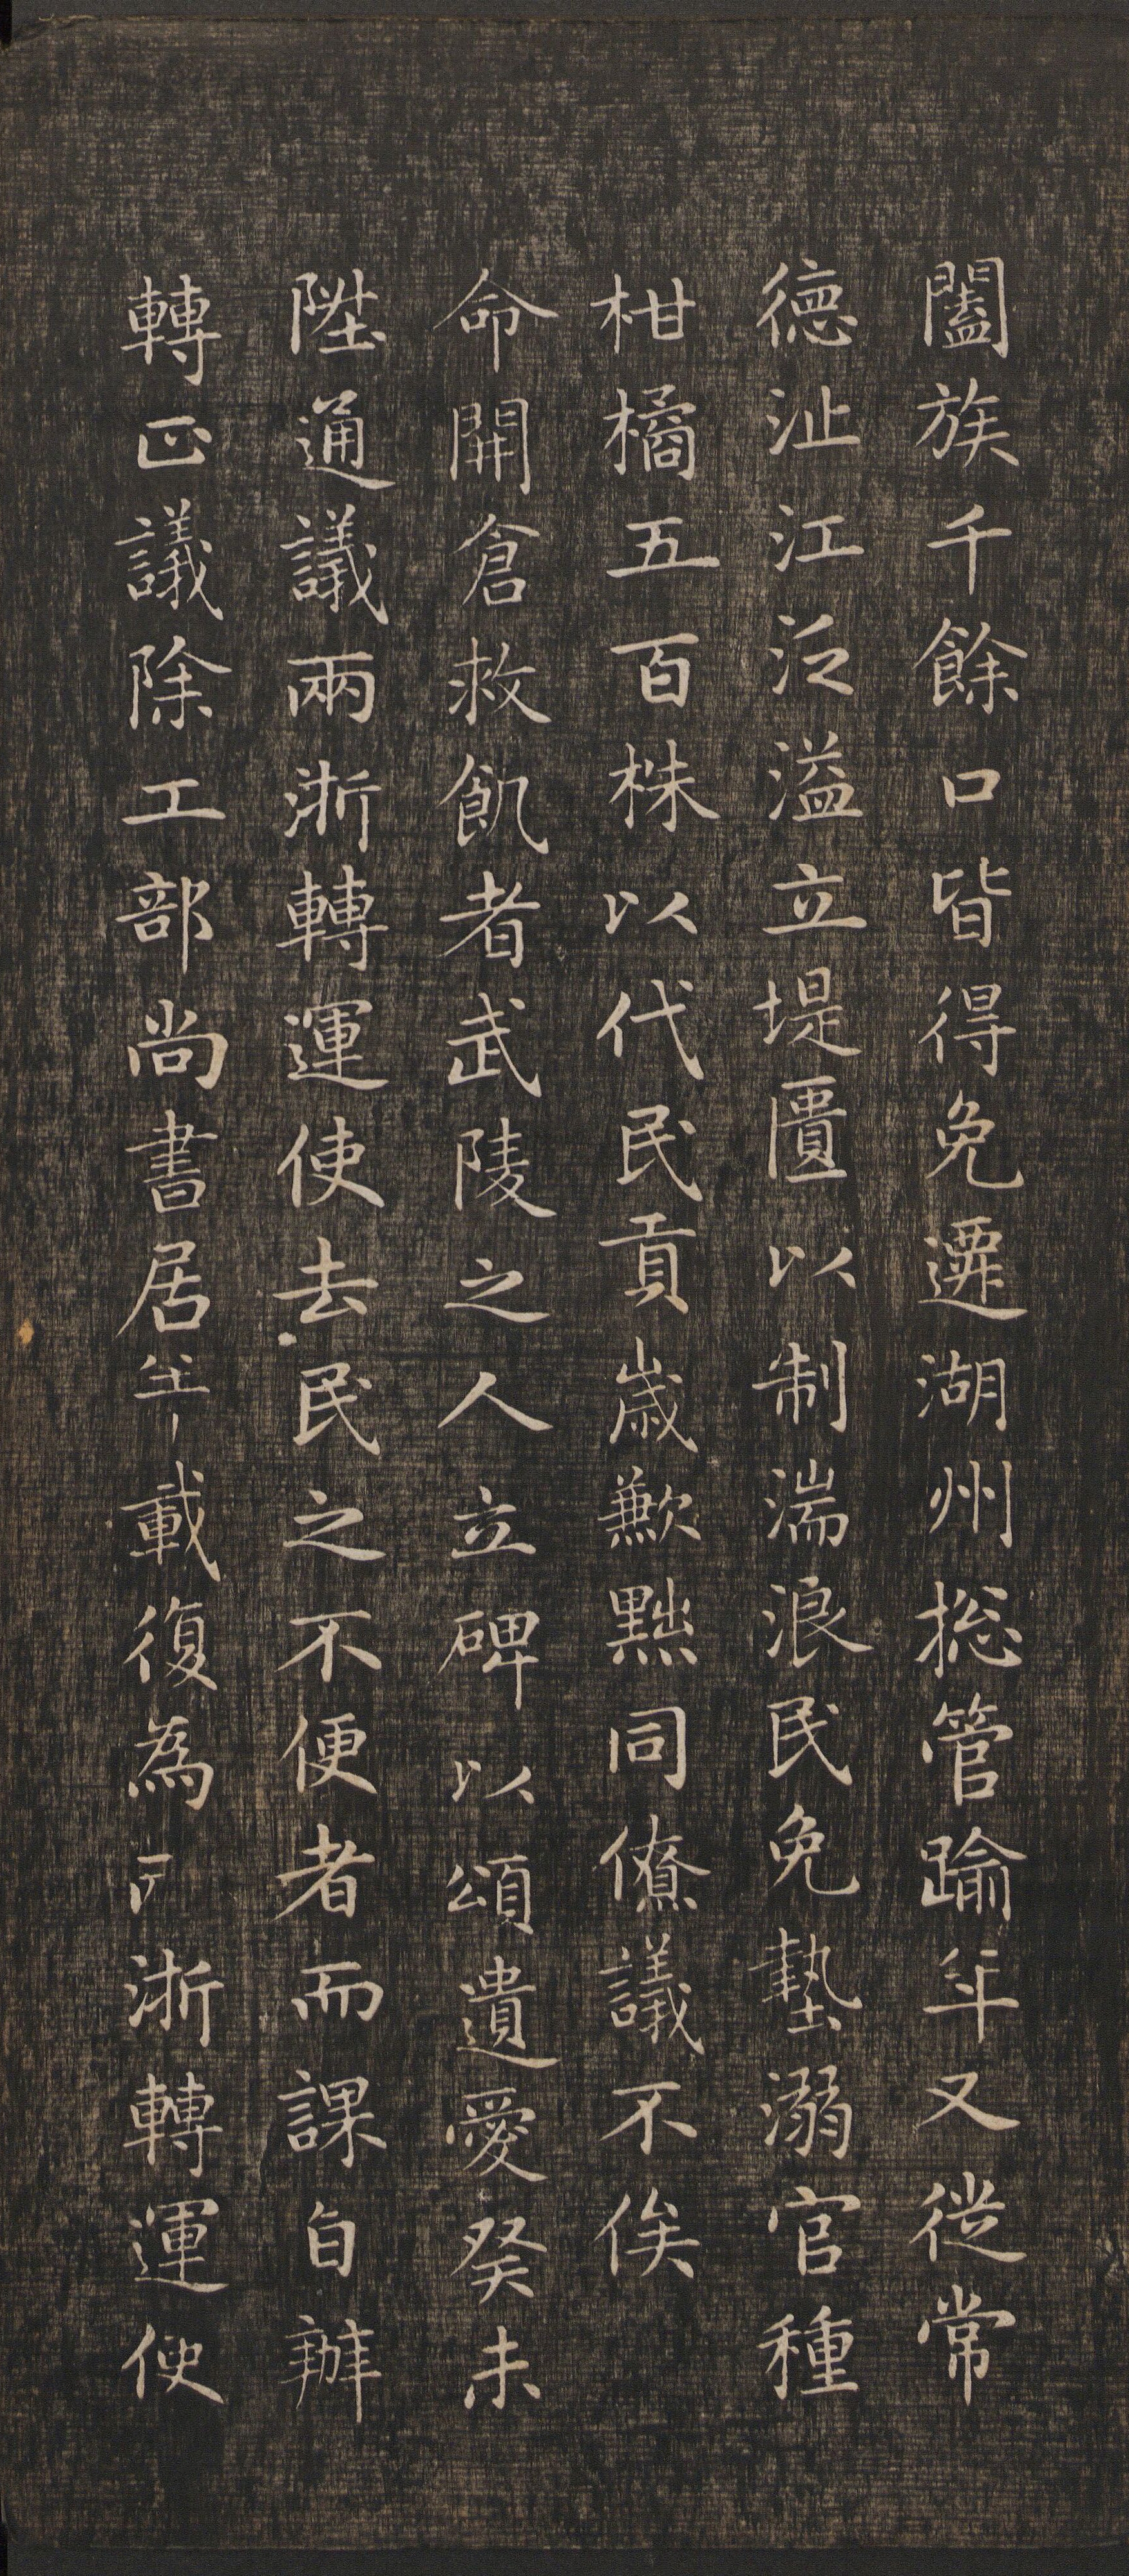 闔族千餘口皆得免遷湖州揔管踰年又從常
德沚江泛溢立堤匱以制湍浪民免墊溺官種
柑橘五百株以代民貢歲歉黜同僚議不俟
命開倉救飢者武陵之人立碑以頌遺愛癸未
陞通議兩浙轉運使去民之不便者而課自辦
轉正議除工部尚書居載復為浙轉運使